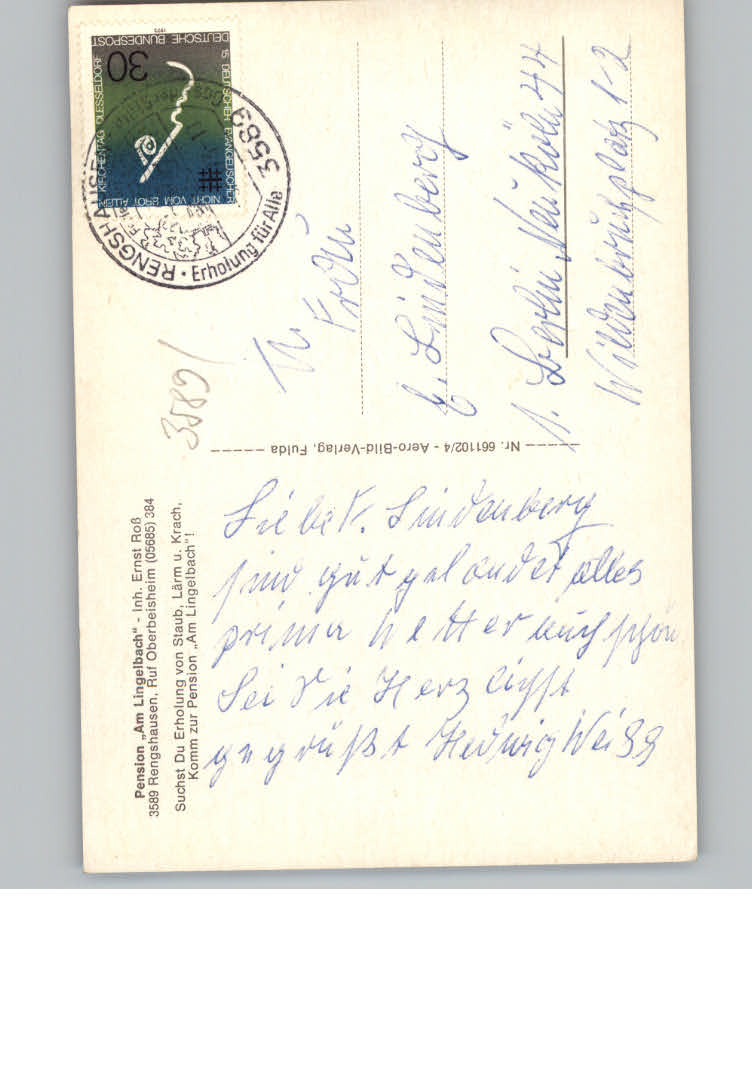 Pension „Am Lingelbach" - Inh. Ernst Roß
3589 Rengshausen, Ruf Oberbeisheim (05685) 384
Suchst Du Erholung von Staub, Lärm u. Krach,
Komm zur Pension „Am Lingelbach"!
Liebe F. Lindenberg
sind gut gelandet alles
prima Wetter auch schön
Sei Sie Herzlichst
gegrüßt Hedwig Weiss
Nr. 661102/4 - Aero-Bild-Verlag, Fulda
3589/
DEUTSCHE BUNDESPOST
1973
30
15. DEUTSCHER EVANGELISCHER
KIRCHENTAG DUESSELDORF
NICHT VOM BROT ALLEIN
3589 RENGSHAUSEN
Erholung für Alle
Frau
E. Lindenberg
1. Berlin Neukölln 44
Wildenbruchplatz 12